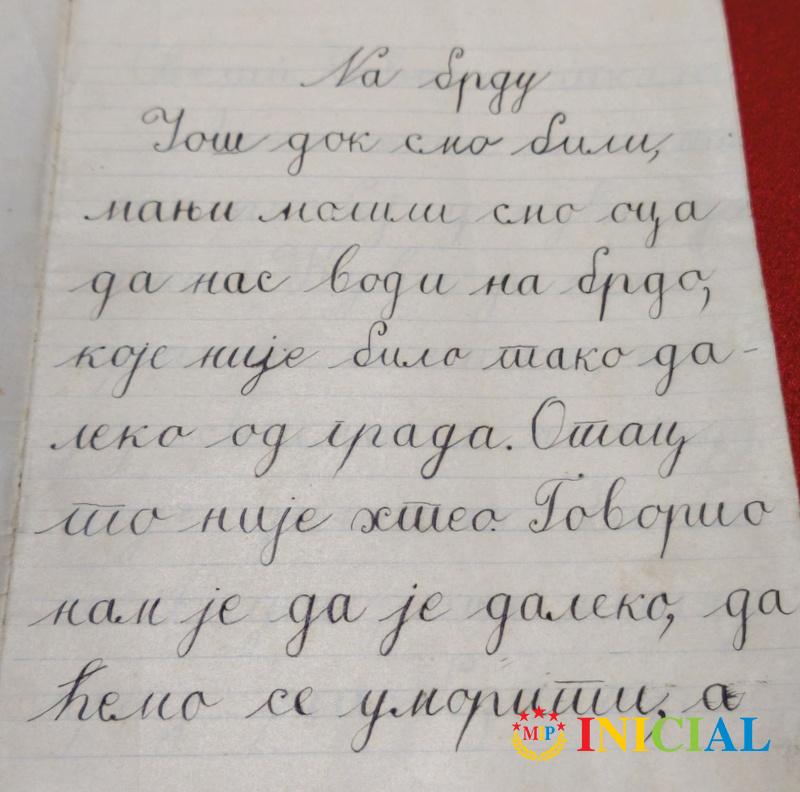 На брду
Још док смо били,
мањи молили смо оца
да нас води на брдо,
које није било тако да-
леко од града. Отац
то није хтео. Говорио
нам је да је далеко, да
ћемо се уморити, а
MIP INICIAL